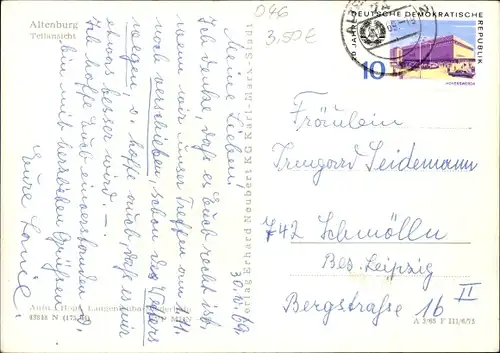 Altenburg
Teilansicht
046
3,50 €
30.10.69
Meine Lieben!
Ich denke, daß es Euch recht ist,
wenn wir unser Treffen am 1.11.
noch verschieben, schon des Wetters
wegen, u. hoffe auch, daß es mir
etwas besser wird. –
Ich hoffe Euch einverstanden u.
bin mit herzlichen Grüßen
Eure
Verlag Erhard Neubert KG Karl-Marx-Stadt
DEUTSCHE DEMOKRATISCHE
REPUBLIK
20 JAHRE
10
HOYERSWERDA
Fräulein
Irmgard Seidemann
742 Schmölln
Bez. Leipzig
Bergstraße 16 II
A 3/65 F III/6/75